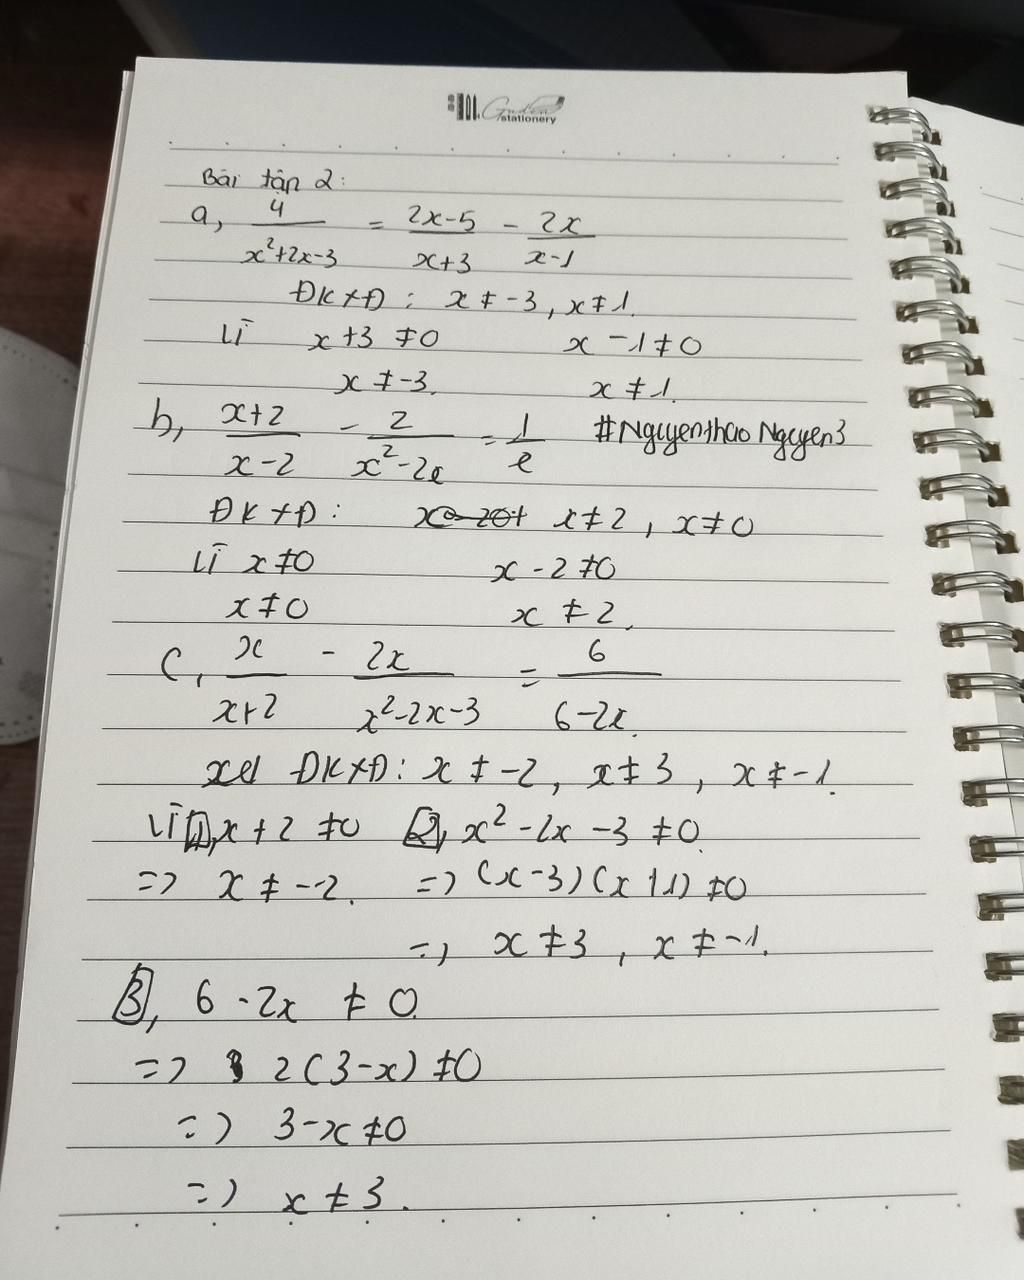 Guden
stationery
Bài tập 2:
a, 4/(x²+2x-3) = (2x-5)/(x+3) - 2x/(x-1)
ĐKXĐ: x ≠ -3, x ≠ 1.
Vì x+3 ≠ 0 x - 1 ≠ 0
x ≠ -3. x ≠ 1.
b, (x+2)/(x-2) - 2/(x²-2x) = 1/x #NguyenthaoNguyen3
ĐKXĐ: x ≠ 2, x ≠ 0
Vì x ≠ 0 x - 2 ≠ 0
x ≠ 0 x ≠ 2.
c, x/(x+2) - 2x/(x²-2x-3) = 6/(6-2x).
xét ĐKXĐ: x ≠ -2, x ≠ 3, x ≠ -1.
Vì 1, x + 2 ≠ 0 2, x² - 2x - 3 ≠ 0.
=> x ≠ -2. => (x-3)(x+1) ≠ 0
=> x ≠ 3, x ≠ -1.
3, 6 - 2x ≠ 0.
=> 2(3-x) ≠ 0
=> 3-x ≠ 0
=> x ≠ 3.